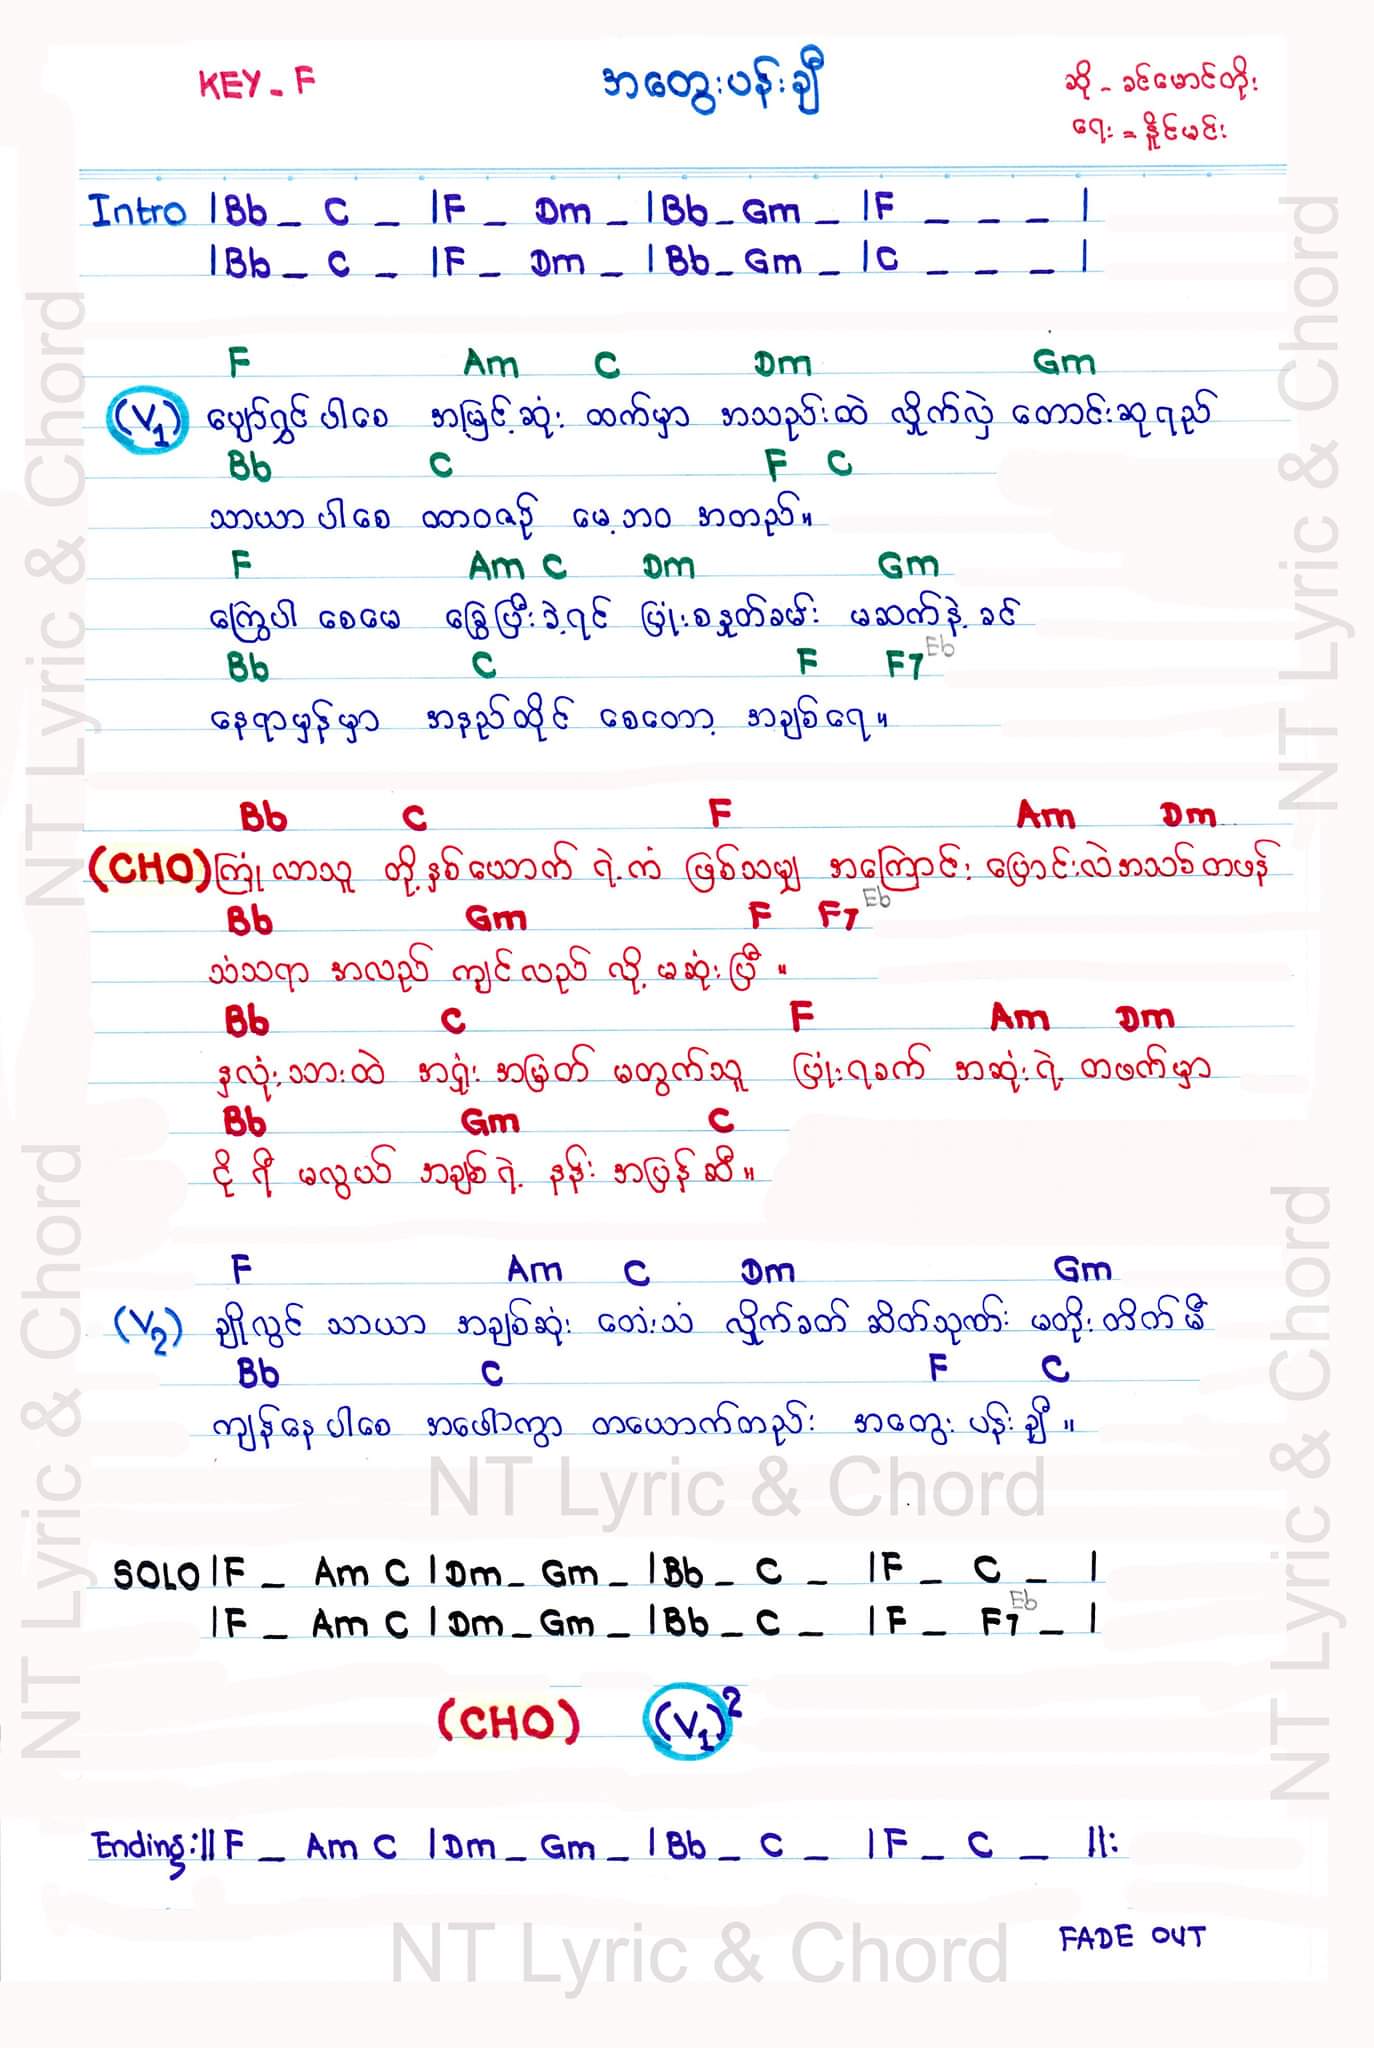 KEY - F
အတွေးပန်းချီ
ဆို - ခင်မောင်တိုး
ရေး = နှိုင်မင်း
Intro |Bb _ C _ |F _ Dm _ |Bb _ Gm _ |F _ _ _ |
|Bb _ C _ |F _ Dm _ |Bb _ Gm _ |C _ _ _ |
F Am C Dm Gm
(V1) ပျော်ရွှင်ပါစေ အမြင့်ဆုံး ထက်မှာ အသည်းထဲ လှိုက်လှဲ တောင်းဆုရည်
Bb C F C
သာယာပါစေ ထာဝစဉ် မေ့ဘဝ အတည်။
F Am C Dm Gm
ကြွေပါ စေမေ ခြွေပြီးခဲ့ရင် ပြုံးစနှုတ်ခမ်း မဆက်နဲ့ ခင်
Bb C F F7 Eb
နေရာမှန်မှာ အနည်ထိုင် စေတော့ အချစ်ရေ။
Bb C F Am Dm
(CHO) ကြုံလာသူ တို့နှစ်ယောက် ရဲ့ကံ ဖြစ်သမျှ အကြောင်း ပြောင်းလဲအသစ်တဖန်
Bb Gm F F7 Eb
သံသရာ အလည် ကျင်လည် လို့ မဆုံးပြီ။
Bb C F Am Dm
နှလုံးသားထဲ အရှုံး အမြတ် မတွက်သူ ပြုံးရခက် အဆုံးရဲ့ တဖက်မှာ
Bb Gm C
ငိုရီ မလွယ် အချစ်ရဲ့ နန်း အပြန်ဆီ။
F Am C Dm Gm
(V2) ချိုလွင် သာယာ အချစ်ဆုံး တေးသံ လှိုက်ခတ် ဆိတ်သုဏ်း မတိုးတိတ်မီ
Bb C F C
ကျန်နေပါစေ အဖေါ်ကွာ တယောက်တည်း အတွေးပန်းချီ။
NT Lyric & Chord
SOLO |F _ Am C |Dm _ Gm _ |Bb _ C _ |F _ C _ |
|F _ Am C |Dm _ Gm _ |Bb _ C _ |F _ F7 Eb _ |
(CHO) (V1)2
Ending :||F _ Am C |Dm _ Gm _ |Bb _ C _ |F _ C _ ||:
FADE OUT
NT Lyric & Chord
NT Lyric & Chord
NT Lyric & Chord
NT Lyric & Chord
NT Lyric & Chord